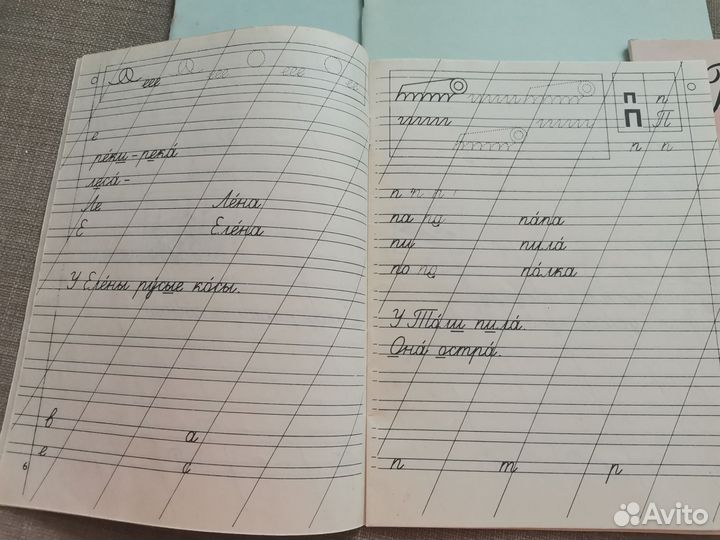 еее еее еее еее
е
ре́ки - река́
леса́ -
Ле Ле́на
Е Еле́на
У Еле́ны ру́сые ко́сы.
в а
е с
6
п п
П П
п п
п п п
па па па́па
пи пила́
по по по́лка
У То́ш пила́.
Она́ остра́.
п т р
Avito